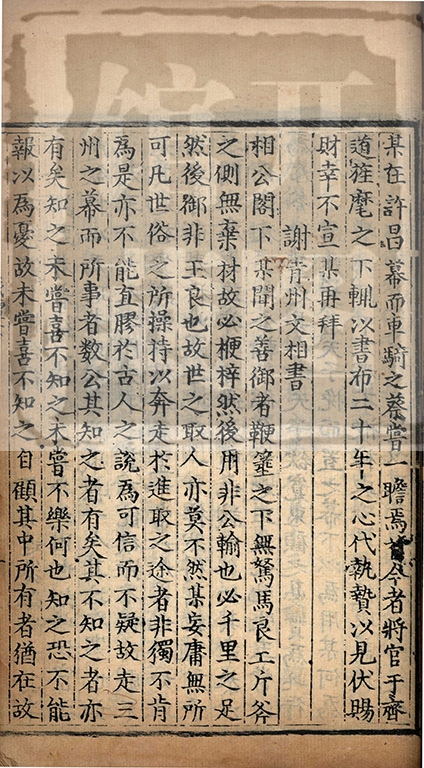 某在許昌幕而車騎之蔡嘗一瞻焉今者將官于齊
道旌麾之下輒以書布二十年之心代執贄以見伏賜
財幸不宣某再拜
謝青州文相書
相公閤下某聞之善御者鞭箠之下無駑馬良工斤斧
之側無棄材故必楩梓然後用非公輸也必千里之足
然後御非王良也故世之取人亦莫不然某妄庸無所
可凡世俗之所操持以奔走於進取之途者非獨不肯
為是亦不能直膠於古人之說為可信而不疑故走三
州之幕而所事者数公其知之者有矣其不知之者亦
有矣知之未嘗喜不知之未嘗不樂何也知之恐不能
報以為憂故未嘗喜不知之自顧其中所有者猶在故